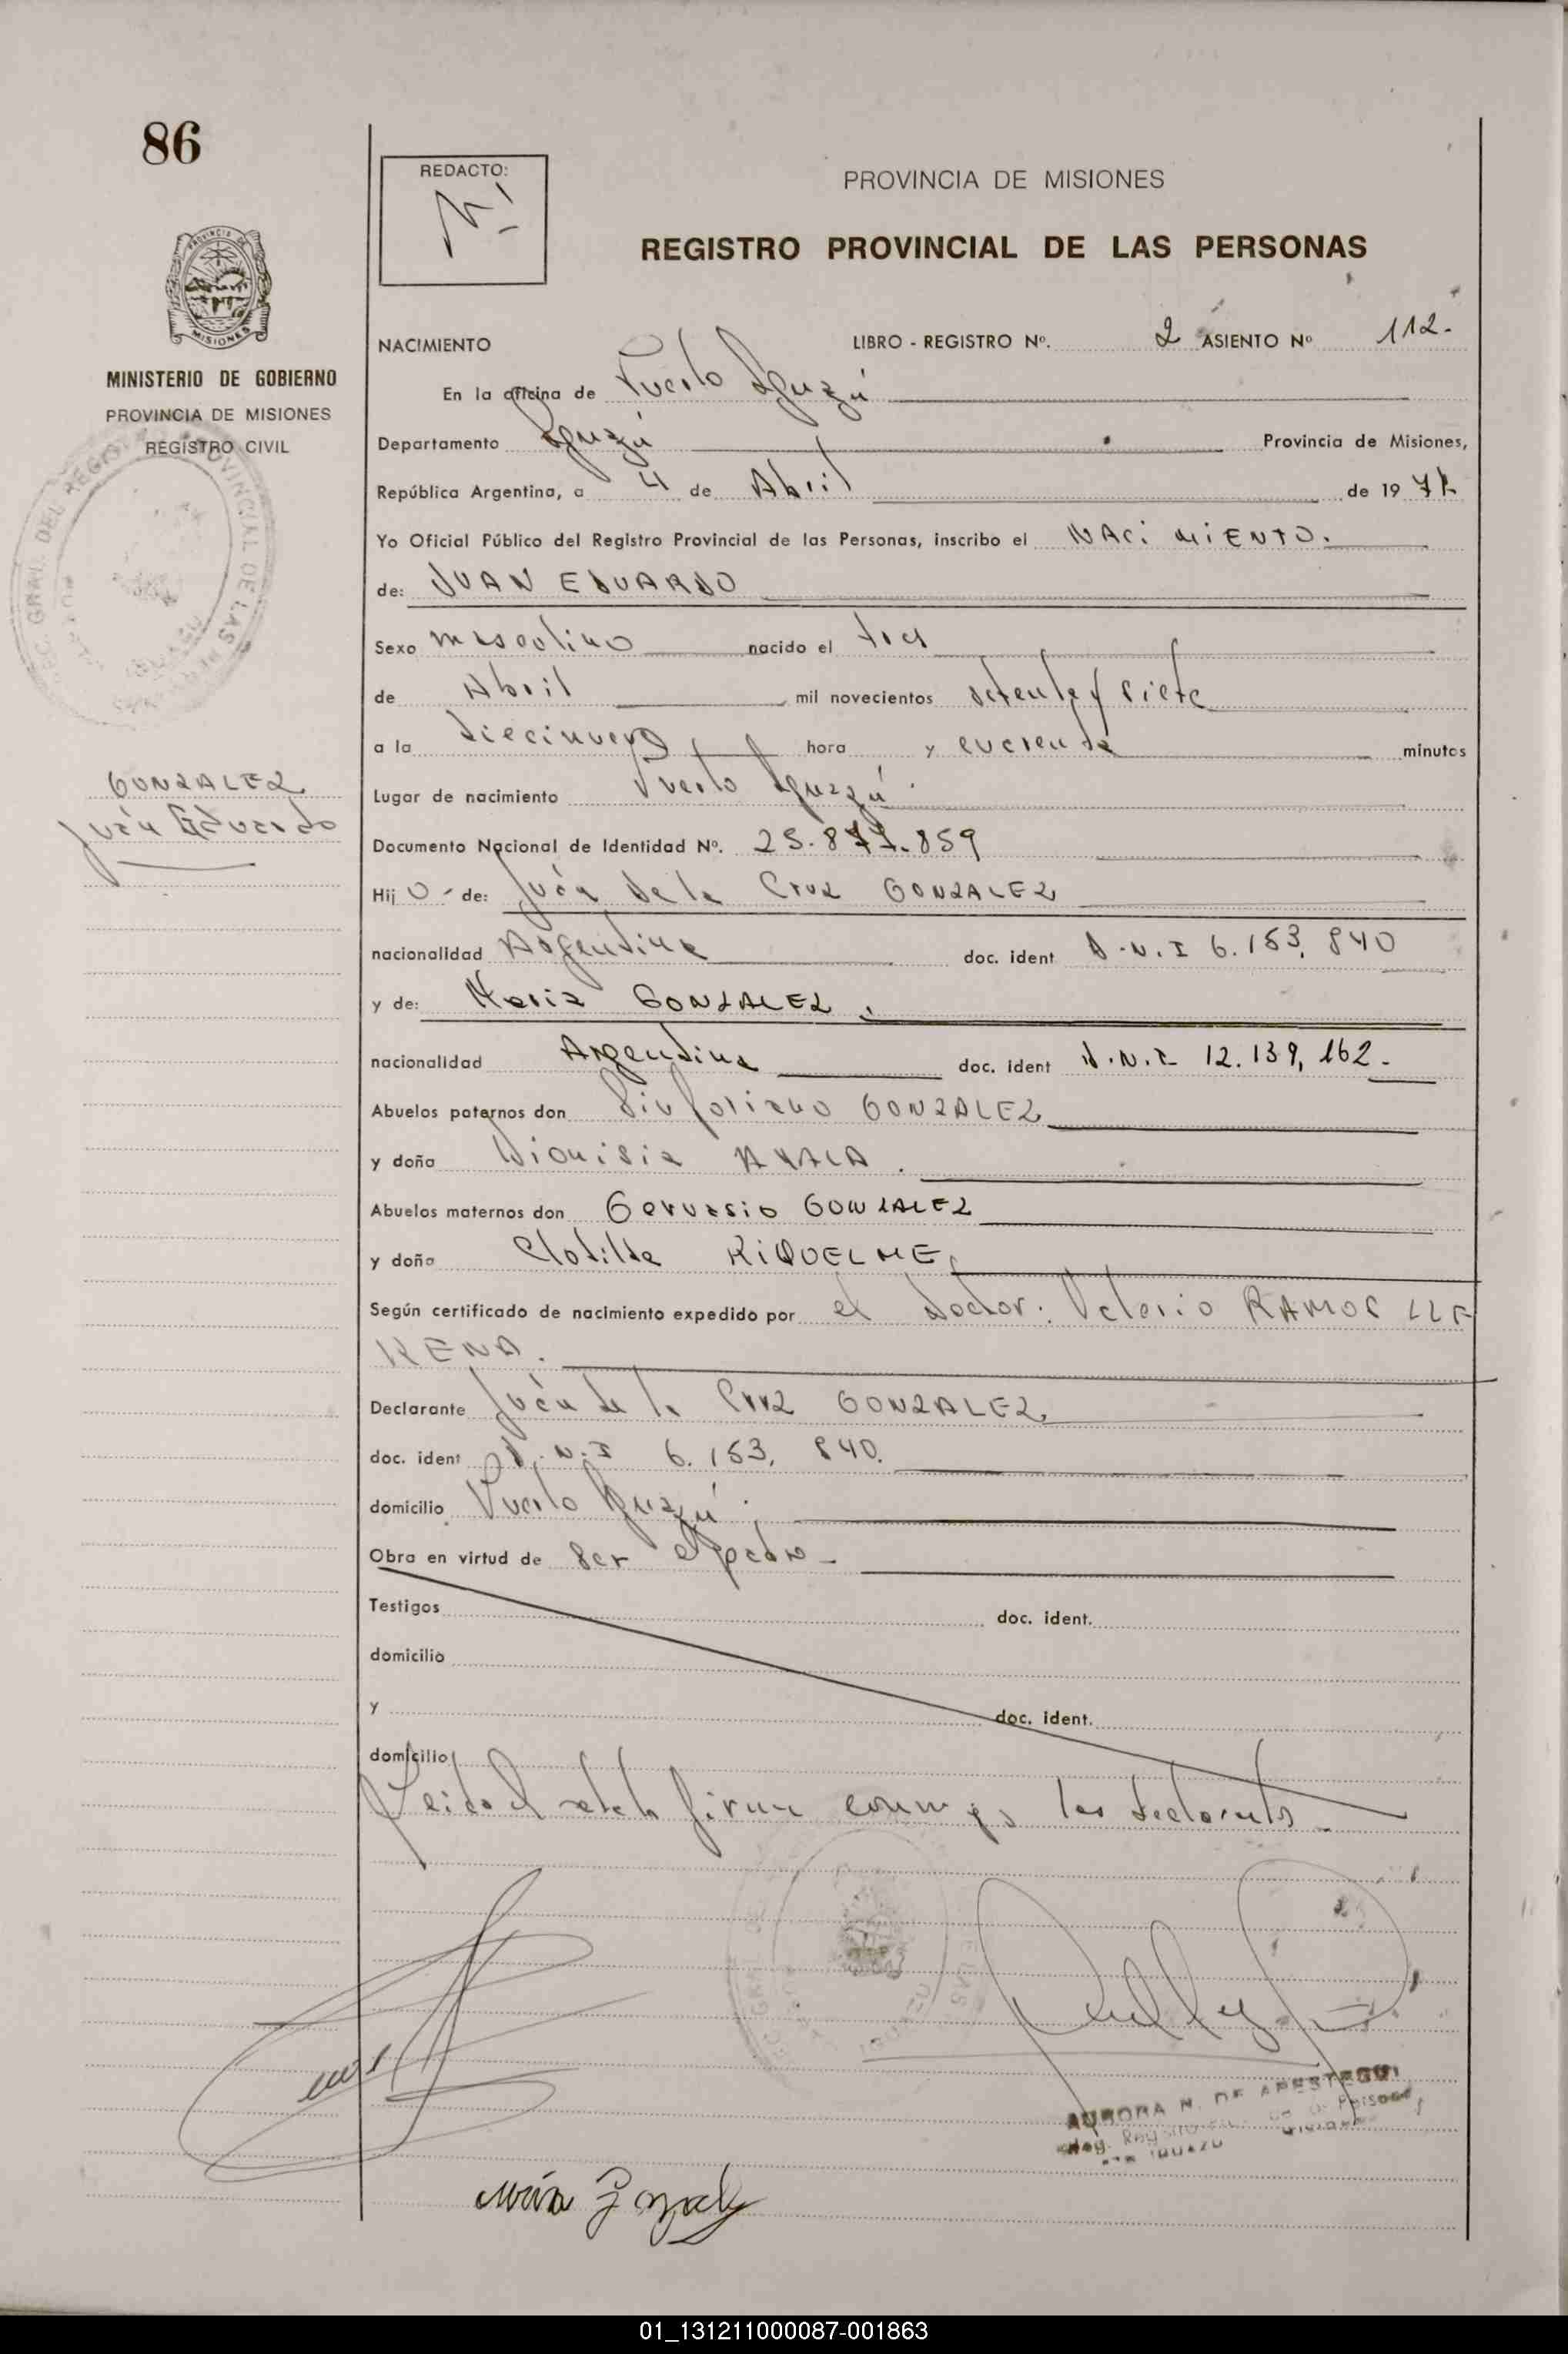 86
REDACTO:
PROVINCIA DE MISIONES
REGISTRO PROVINCIAL DE LAS PERSONAS
MISIONES
MINISTERIO DE GOBIERNO
PROVINCIA DE MISIONES
REGISTRO CIVIL
GONZALEZ
Juan Eduardo
NACIMIENTO LIBRO - REGISTRO Nº. 2 ASIENTO Nº 112.
En la oficina de Puerto Iguazú
Departamento Iguazú Provincia de Misiones,
República Argentina, a 4 de Abril de 19 77
Yo Oficial Público del Registro Provincial de las Personas, inscribo el NACIMIENTO.
de: JUAN EDUARDO
Sexo masculino nacido el tres
de Abril mil novecientos setenta y siete
a la diecinueve hora y cuarenta minutos
Lugar de nacimiento Puerto Iguazú
Documento Nacional de Identidad Nº. 25.877.859
Hij o de: Juan de la Cruz GONZALEZ
nacionalidad Argentina doc. ident D.N.I 6.153.840
y de: Maria GONZALEZ.
nacionalidad Argentina doc. ident D.N.I 12.139,162-
Abuelos paternos don Sinforiano GONZALEZ
y doña Dionisia AYALA.
Abuelos maternos don Gervasio GONZALEZ
y doña Clotilde RIQUELME
Según certificado de nacimiento expedido por el Doctor: Valerio RAMOS LLE
RENA.
Declarante Juan de la Cruz GONZALEZ
doc. ident D.N.I 6.153.840.
domicilio Puerto Iguazú.
Obra en virtud de ser el padre -
Testigos doc. ident.
domicilio
y doc. ident.
domicilio
Leida el acta la firman conmigo los declarantes.
AURORA N. DE APESTEGUI
PTO IGUAZU
María Gonzalez
01_131211000087-001863